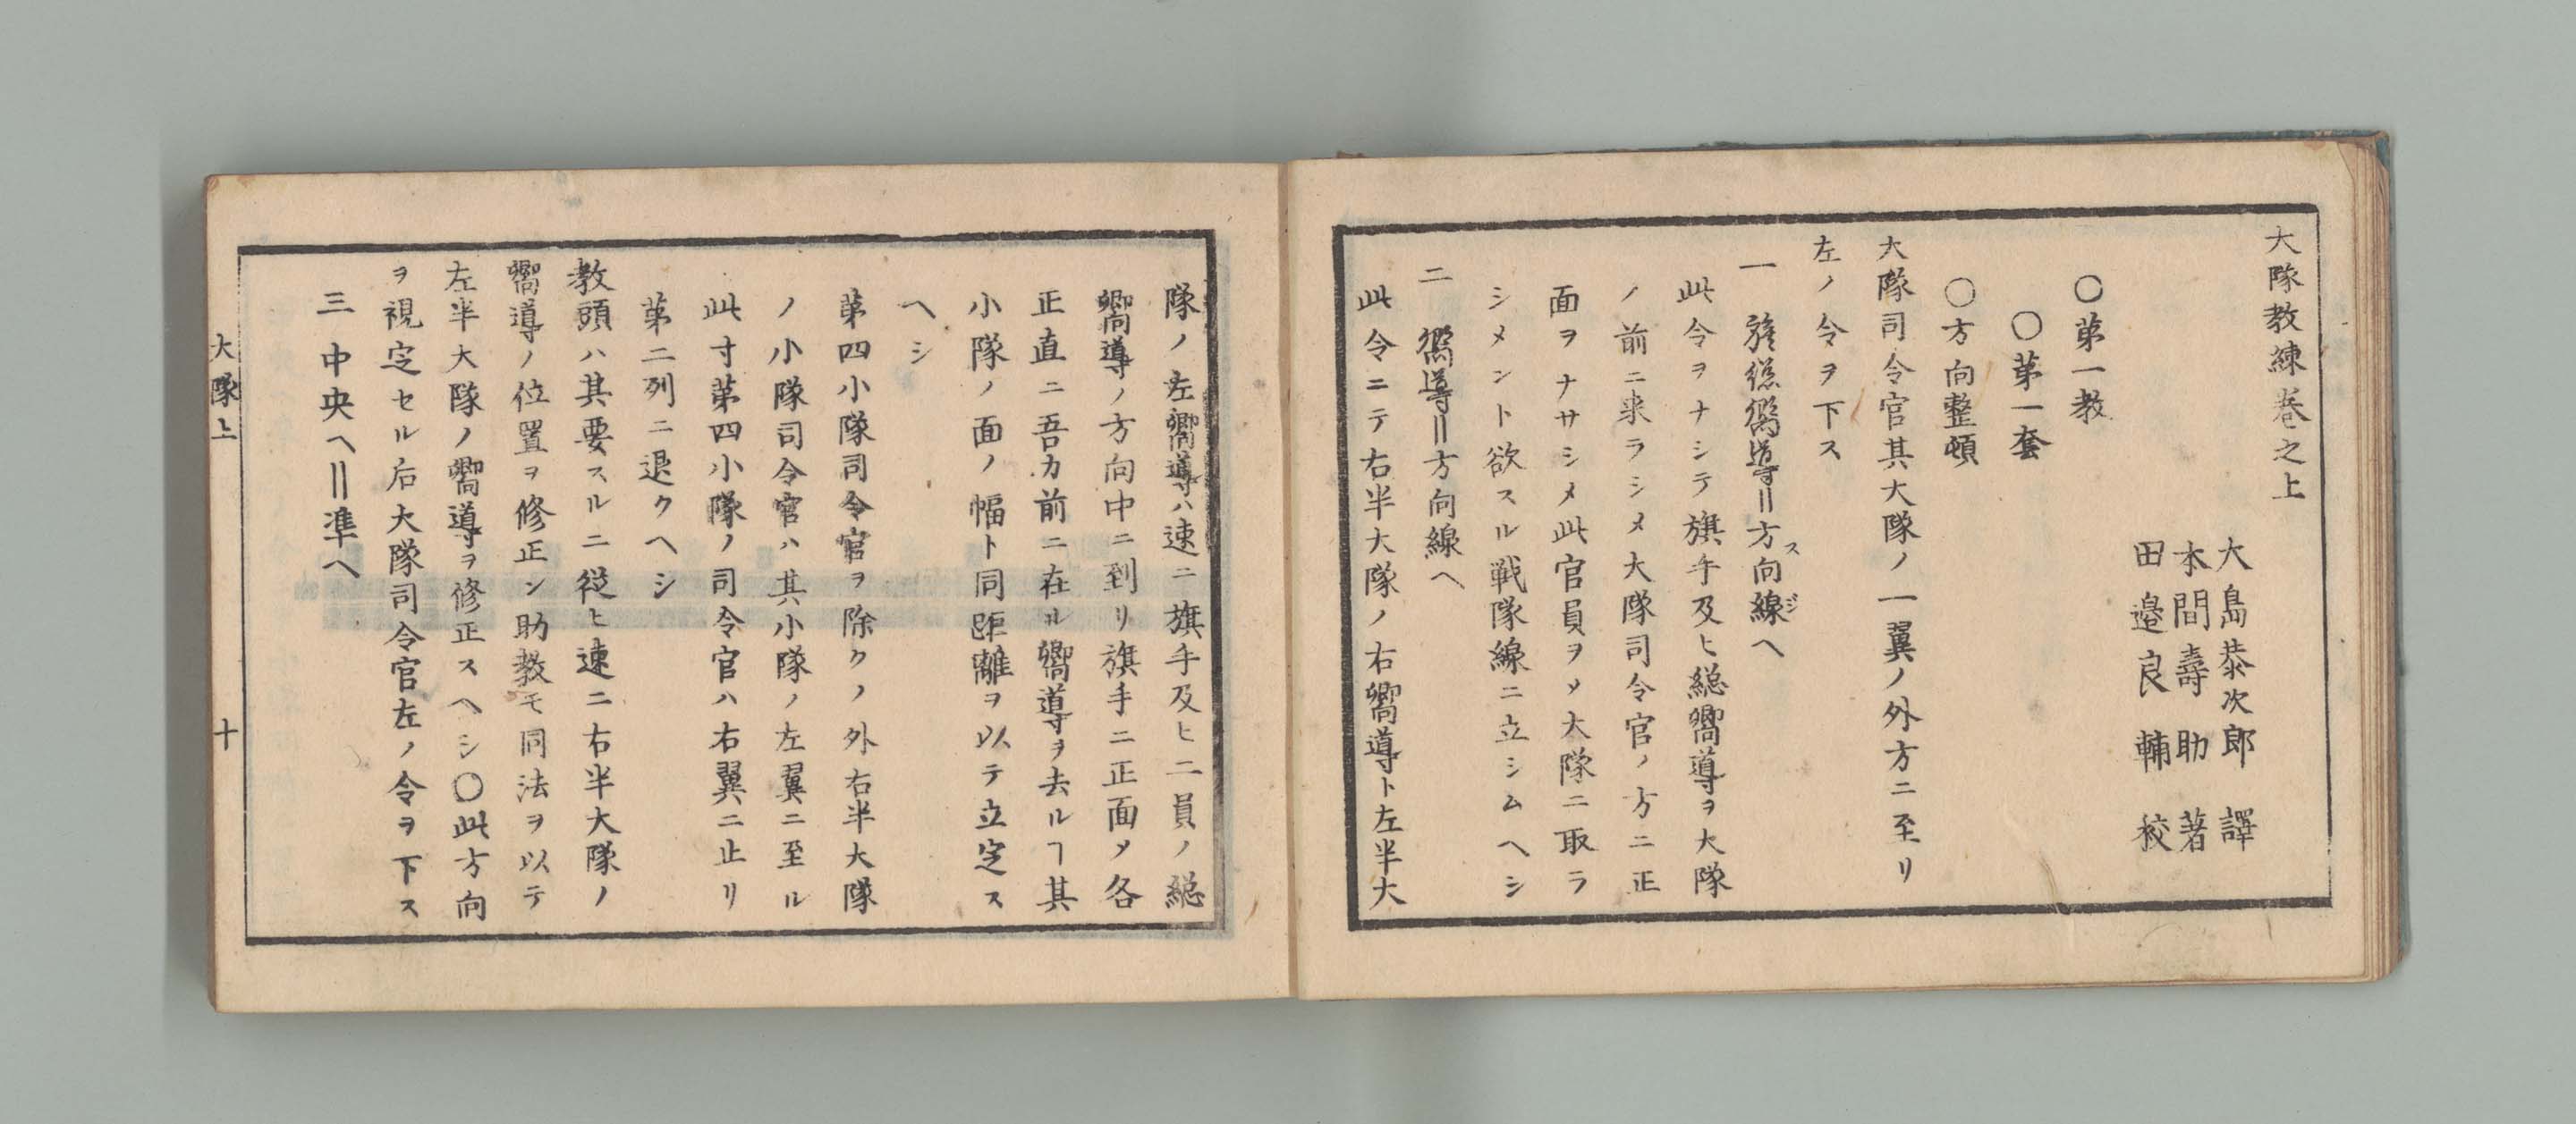 大隊教練巻之上
大島恭次郎 譯
本間壽助 著
田邉良輔 校
〇第一教
〇第一套
〇方向整頓
大隊司令官其大隊ノ一翼ノ外方ニ至リ
左ノ令ヲ下ス
一 旌総嚮導‖方向線ヘ
スジ
此令ヲナシテ旗手及ヒ総嚮導ヲ大隊
ノ前ニ来ラシメ大隊司令官ノ方ニ正
面ヲナサシメ此官員ヲメ大隊ニ取ラ
シメント欲スル戦隊線ニ立シムヘシ
二 嚮導‖方向線ヘ
此令ニテ右半大隊ノ右嚮導ト左半大
隊ノ左嚮導ハ速ニ旗手及ヒ二員ノ総
嚮導ノ方向中ニ到リ旗手ニ正面メ各
正直ニ吾カ前ニ在ル嚮導ヲ去ルヿ其
小隊ノ面ノ幅ト同距離ヲ以テ立定ス
ヘシ
第四小隊司令官ヲ除クノ外右半大隊
ノ小隊司令官ハ其小隊ノ左翼ニ至ル
此寸第四小隊ノ司令官ハ右翼ニ止リ
第二列ニ退クヘシ
教頭ハ其要スルニ従ヒ速ニ右半大隊ノ
嚮導ノ位置ヲ修正シ助教モ同法ヲ以テ
左半大隊ノ嚮導ヲ修正スヘシ〇此方向
ヲ視定セル后大隊司令官左ノ令ヲ下ス
三 中央ヘ‖準ヘ
大隊上
十